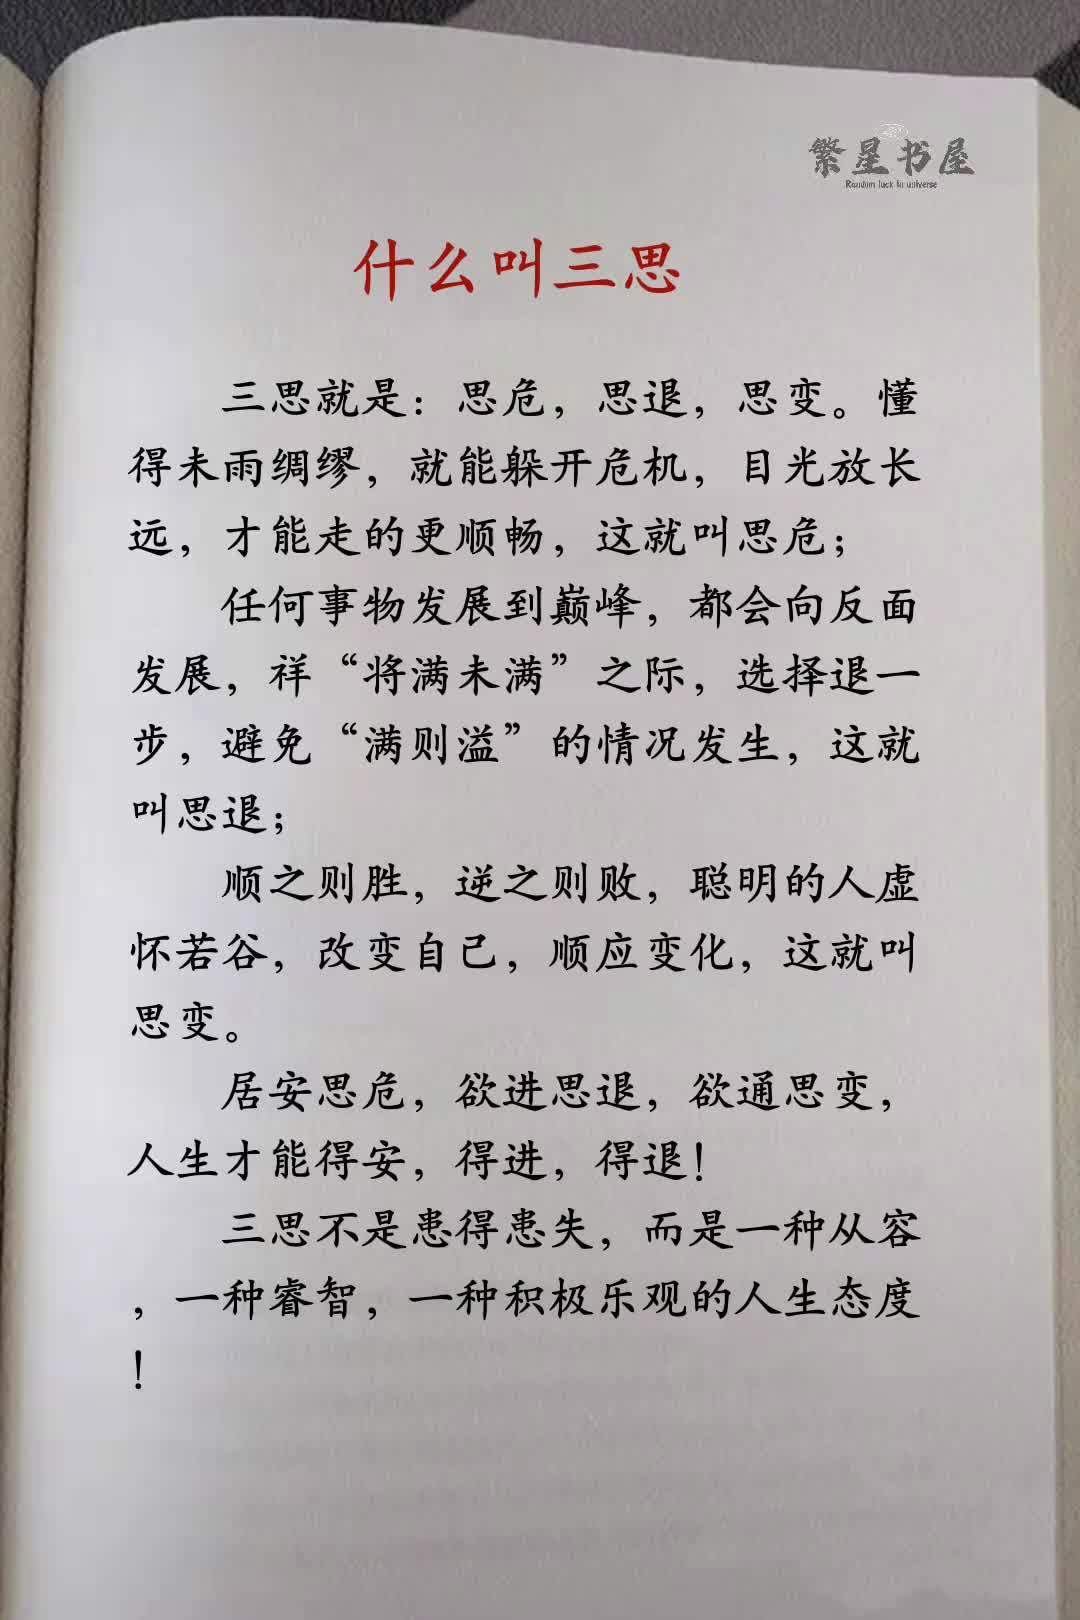 繁星书屋
Random luck to universe
什么叫三思
三思就是：思危，思退，思变。懂
得未雨绸缪，就能躲开危机，目光放长
远，才能走的更顺畅，这就叫思危；
任何事物发展到巅峰，都会向反面
发展，祥“将满未满”之际，选择退一
步，避免“满则溢”的情况发生，这就
叫思退；
顺之则胜，逆之则败，聪明的人虚
怀若谷，改变自己，顺应变化，这就叫
思变。
居安思危，欲进思退，欲通思变，
人生才能得安，得进，得退！
三思不是患得患失，而是一种从容
，一种睿智，一种积极乐观的人生态度
！